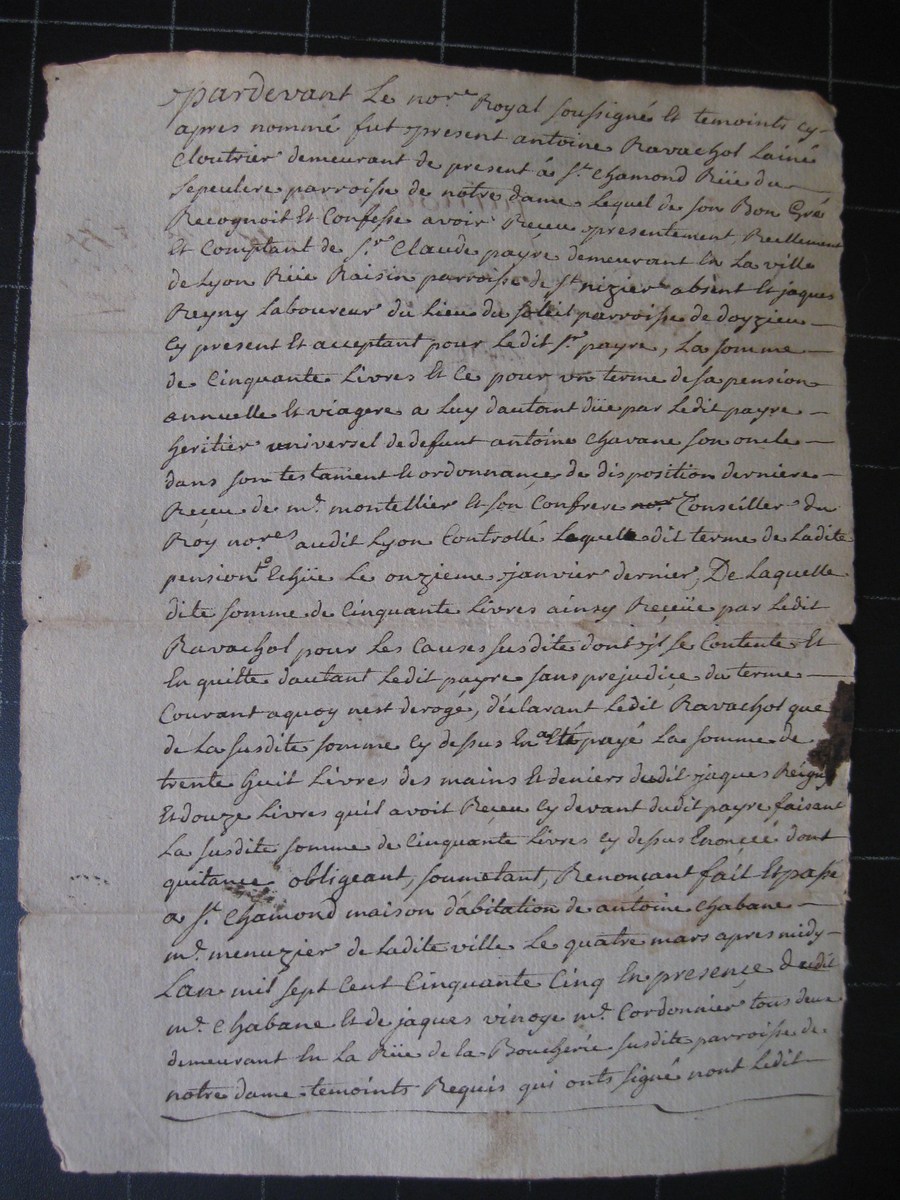 Pardevant Le no.re Royal soussigné Et temoints cy-
apres nommé fut present antoine Ravachol Lainé
Cloutrier demeurant de present á St. Chamond Rüe du
Sepulcre parroisse de notre dame Lequel de son Bon Gré
Recognoit Et Confesse avoir Receu presentement, Reellement
Et Comptant de Sr. Claude payre demeurant En La ville
de Lyon Rüe Raisin parroisse de St nizier absent Et jaques
Reyny Laboureur du Lieu du soleil parroisse de doyzieu
Cy present Et acceptant pour Ledit Sr. payre, La somme
de Cinquante Livres Et Ce pour un terme de sa pension
annuelle Et viagere a Luy dautant düe par Ledit payre
heritier universel de defunt antoine Chavane son oncle
dans son testament Et ordonnance de disposition derniere
Receu de mr. montellier Et son Confrere nor. Conseiller du
Roy no.res audit Lyon Controllé Laquelle dit terme de Ladite
pension Echüe Le onzieme janvier dernier, De Laquelle
dite somme de Cinquante Livres ainsy Reçeüe par Ledit
Ravachol pour Les Causes susdite dont jl se Contente Et
En quitte dautant Ledit payre sans prejudice du terme
Courant aquoy nest derogé, déclarant Ledit Ravachol que
de La susdite somme Cy dessus En a Eté payé La somme de
trente huit Livres des mains Et deniers dudit jaques Reigny
Et douze Livres quil avoit Receu Cy devant dudit payre faisant
La susdite somme de Cinquante Livres Cy dessus Enonceé dont
quitance. obligeant, soumetant, Renonçant fait Et passé
a St. Chamond maison d'abitation de antoine Chabane
mr. menuzier de Ladite ville Le quatre mars apres midy
Lan mil sept Cent Cinquante Cinq En presence dudit
mr. Chabane Et de jaques vinoge mr. Cordonnier tous deux
demeurant En La Rüe de la Boucherie susdite parroisse de
notre dame temoints Requis qui onts signé nont Ledit